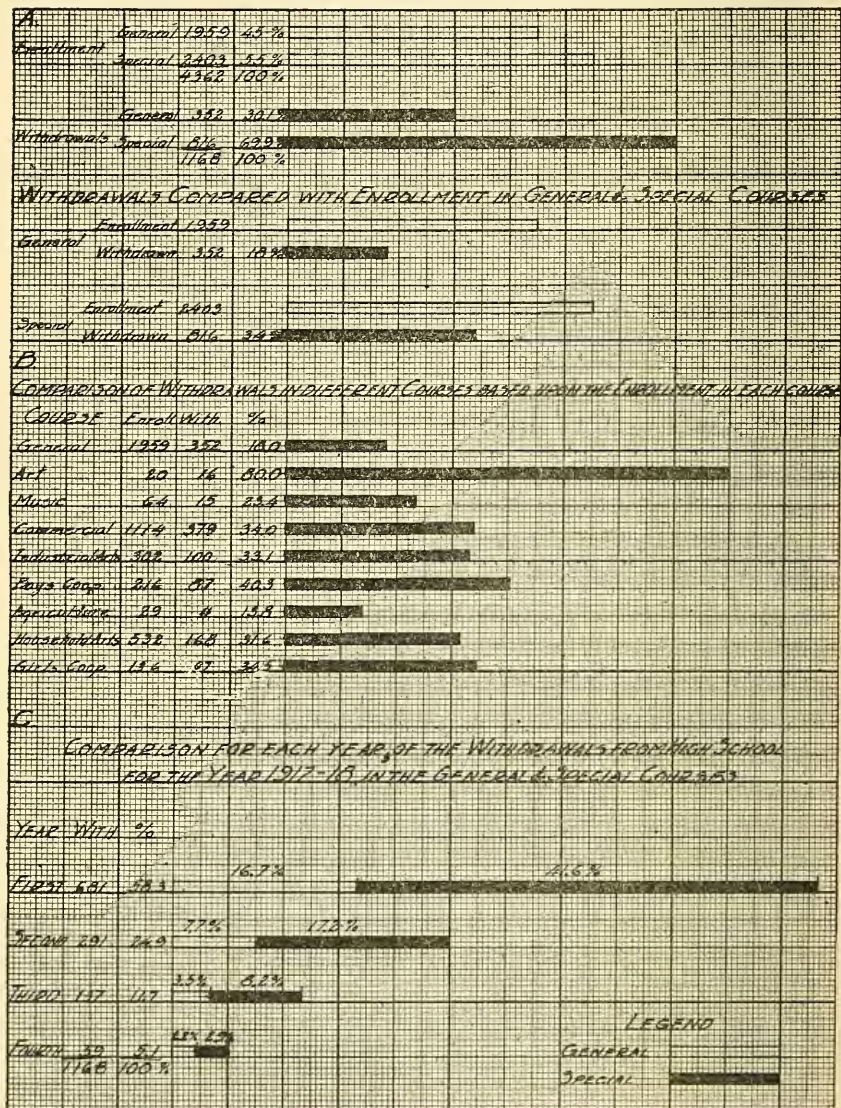 A.
General 1959 45%
Enrollment
Special 2403 55%
4362 100%
General 352 30.1%
Withdrawals Special 816 69.9%
1168 100%
WITHDRAWALS COMPARED WITH ENROLLMENT IN GENERAL & SPECIAL COURSES
Enrollment 1959
General
Withdrawn 352 18%
Enrollment 2403
Special
Withdrawn 816 34%
B
COMPARISON OF WITHDRAWALS IN DIFFERENT COURSES BASED UPON THE ENROLLMENT IN EACH COURSE
COURSE Enroll With. %
General 1959 352 18.0
Art 20 16 80.0
Music 64 15 23.4
Commercial 1114 379 34.0
Industrial Arts 302 100 33.1
Boys Coop. 216 87 40.3
Agriculture 29 4 13.8
Household Arts 532 168 31.6
Girls Coop
C
COMPARISON FOR EACH YEAR, OF THE WITHDRAWALS FROM HIGH SCHOOL
FOR THE YEAR 1917-18, IN THE GENERAL & SPECIAL COURSES
YEAR WITH %
16.7% 41.6%
FIRST 681 58.3
7.7% 17.2%
SECOND 291 24.9
3.5% 8.2%
THIRD 137 11.7
2.9%
FOURTH 59 5.1
1168 100%
LEGEND
GENERAL
SPECIAL